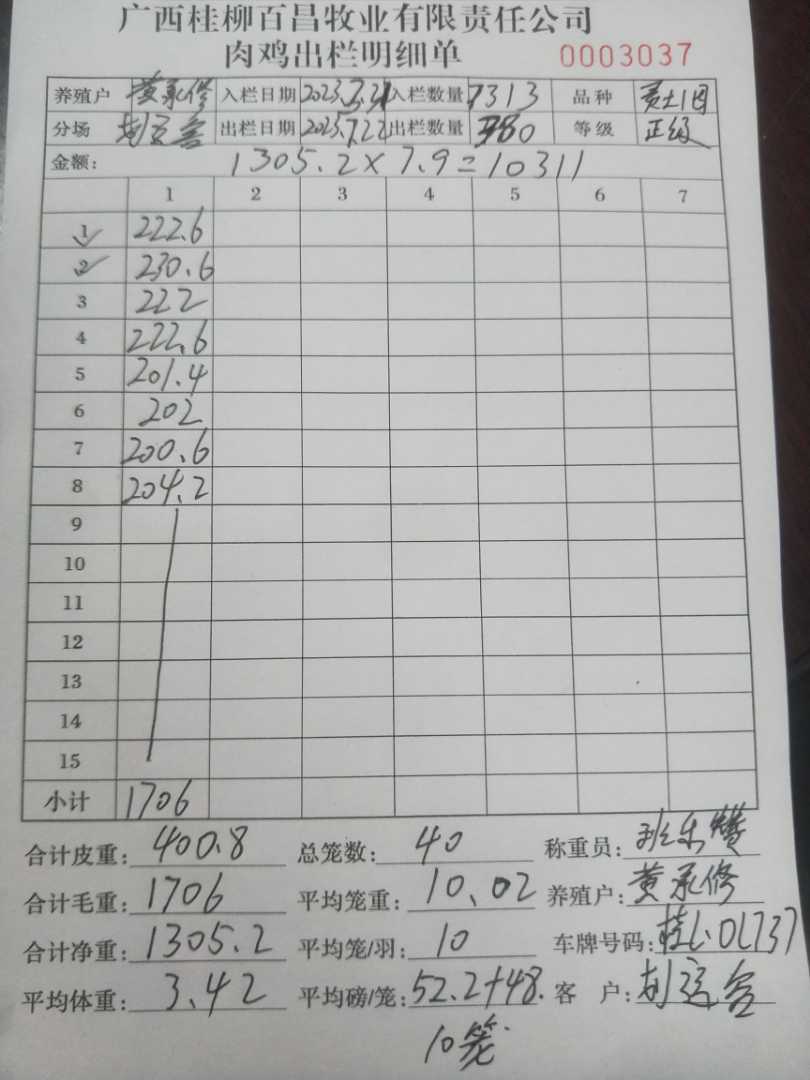 广西桂柳百昌牧业有限责任公司
肉鸡出栏明细单 0003037
养殖户 黄承修 入栏日期 2023.3.31 入栏数量 7313 品种
分场 出栏日期 2023.7.22 出栏数量 380 等级 正级
金额: 1305.2×7.9=10311
1 2 3 4 5 6 7
1 222.6
2 230.6
3 222
4 222.6
5 201.4
6 202
7 200.6
8 204.2
9
10
11
12
13
14
15
小计 1706
合计皮重: 400.8 总笼数: 40 称重员:
合计毛重: 1706 平均笼重: 10.02 养殖户: 黄承修
合计净重: 1305.2 平均笼/羽: 10 车牌号码:
平均体重: 3.42 平均磅/笼: 52.2+48. 客户:
10笼